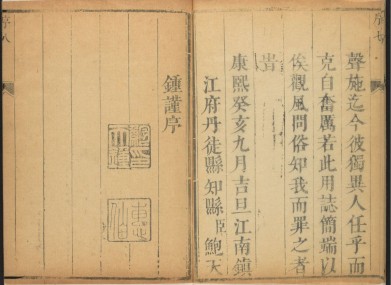 聲施迄今彼獨異人任乎而
克自奮厲若此用誌簡端以
俟觀風問俗知我而罪之者
旹
康熙癸亥九月吉旦江南鎮
江府丹徒縣知縣臣鮑天
鍾謹序